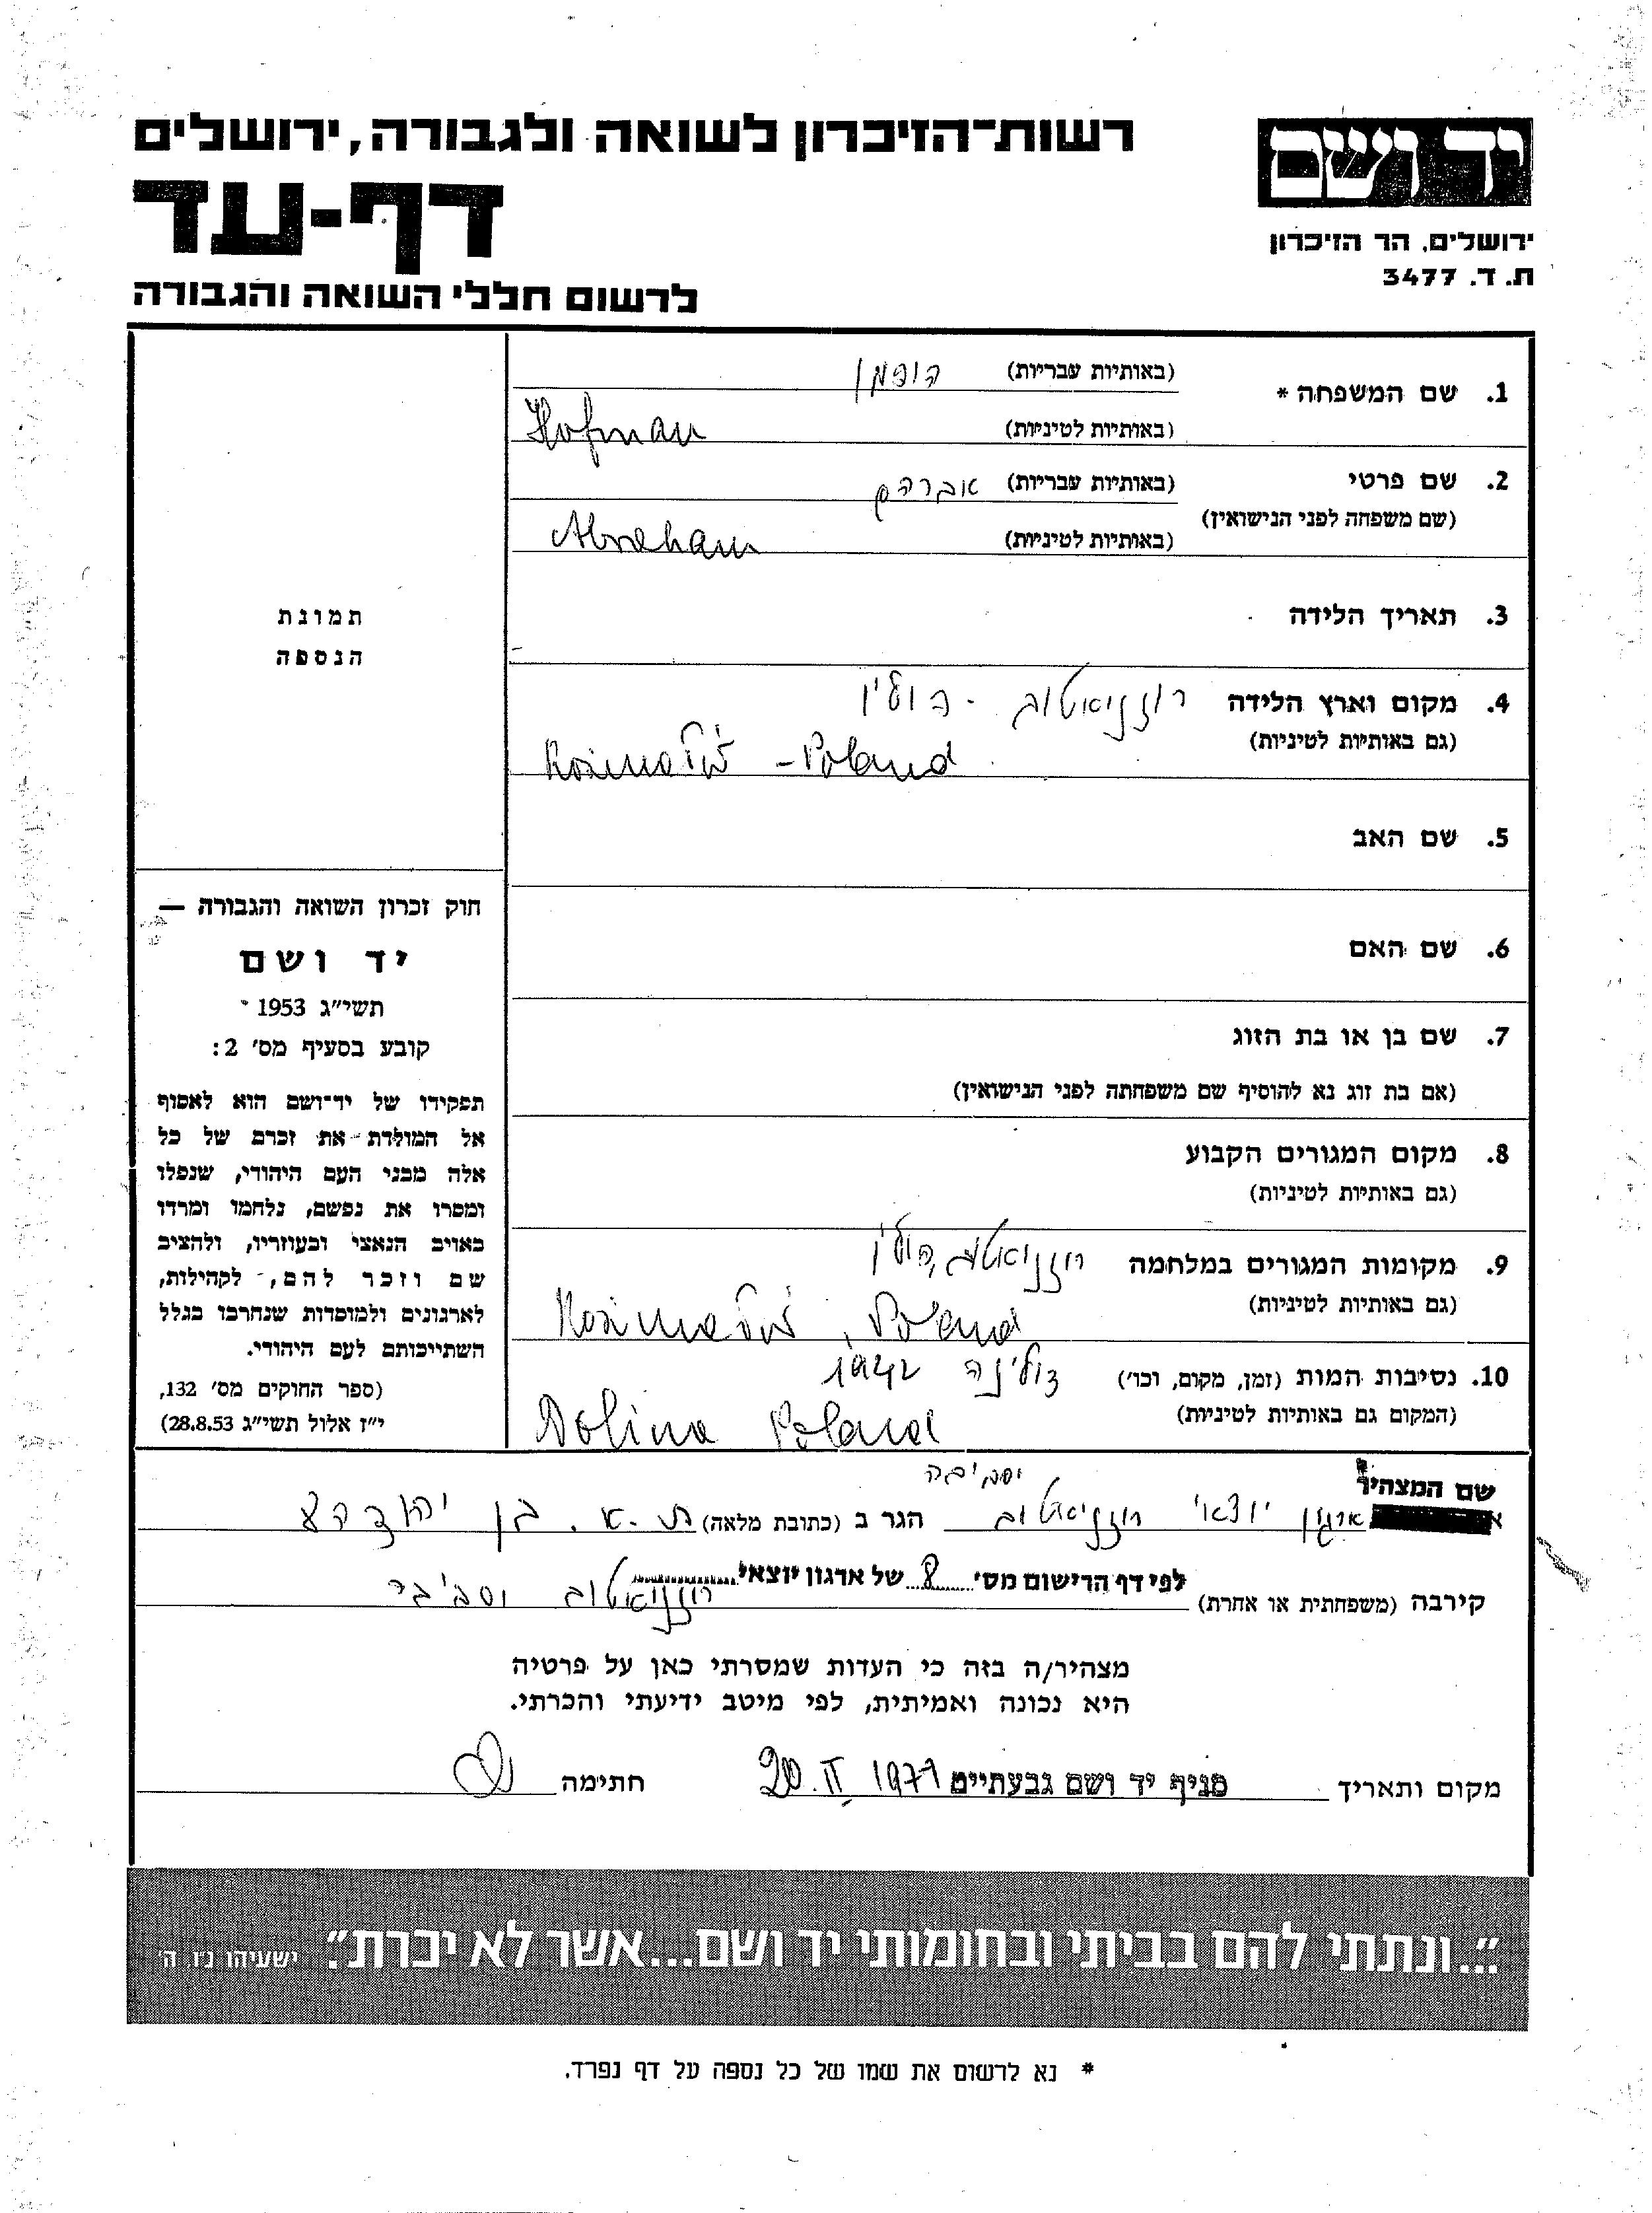 יד ושם
ירושלים, הר הזיכרון
ת. ד. 3477
רשות־הזיכרון לשואה ולגבורה, ירושלים
דף-עד
לרשום חללי השואה והגבורה
1. שם המשפחה * (באותיות עבריות) הופמן
(באותיות לטיניות) Hofman
2. שם פרטי (באותיות עבריות) אברהם
(שם משפחה לפני הנישואין)
(באותיות לטיניות) Abraham
3. תאריך הלידה
4. מקום וארץ הלידה רוזניאטוב - פולין
(גם באותיות לטיניות)
Rozniatów - Poland
5. שם האב
6. שם האם
7. שם בן או בת הזוג
(אם בת זוג נא להוסיף שם משפחתה לפני הנישואין)
8. מקום המגורים הקבוע
(גם באותיות לטיניות)
9. מקומות המגורים במלחמה רוזניאטוב, פולין
(גם באותיות לטיניות)
Rozniatów, Poland
10. נסיבות המות (זמן, מקום, וכו') דולינה 1942
(המקום גם באותיות לטיניות)
Dolina Poland
תמונת
הנספה
חוק זכרון השואה והגבורה —
יד ושם
תשי"ג 1953
קובע בסעיף מס' 2:
תפקידו של יד־ושם הוא לאסוף
אל המולדת את זכרם של כל
אלה מבני העם היהודי, שנפלו
ומסרו את נפשם, נלחמו ומרדו
באויב הנאצי ובעוזריו, ולהציב
שם וזכר להם, לקהילות,
לארגונים ולמוסדות שנחרבו בגלל
השתייכותם לעם היהודי.
(ספר החוקים מס' 132,
י"ז אלול תשי"ג 28.8.53)
שם המצהיר
ארגון יוצאי רוזניאטוב והסביבה הגר ב (כתובת מלאה) ת.א. בן יהודה
לפי דף הרישום מס' 8 של ארגון יוצאי
קירבה (משפחתית או אחרת) רוזניאטוב וסביב'
מצהיר/ה בזה כי העדות שמסרתי כאן על פרטיה
היא נכונה ואמיתית, לפי מיטב ידיעתי והכרתי.
מקום ותאריך סניף יד ושם גבעתיים 20.II 1977 חתימה
"...ונתתי להם בביתי ובחומותי יד ושם...אשר לא יכרת." ישעיהו נ"ו, ה'
* נא לרשום את שמו של כל נספה על דף נפרד.